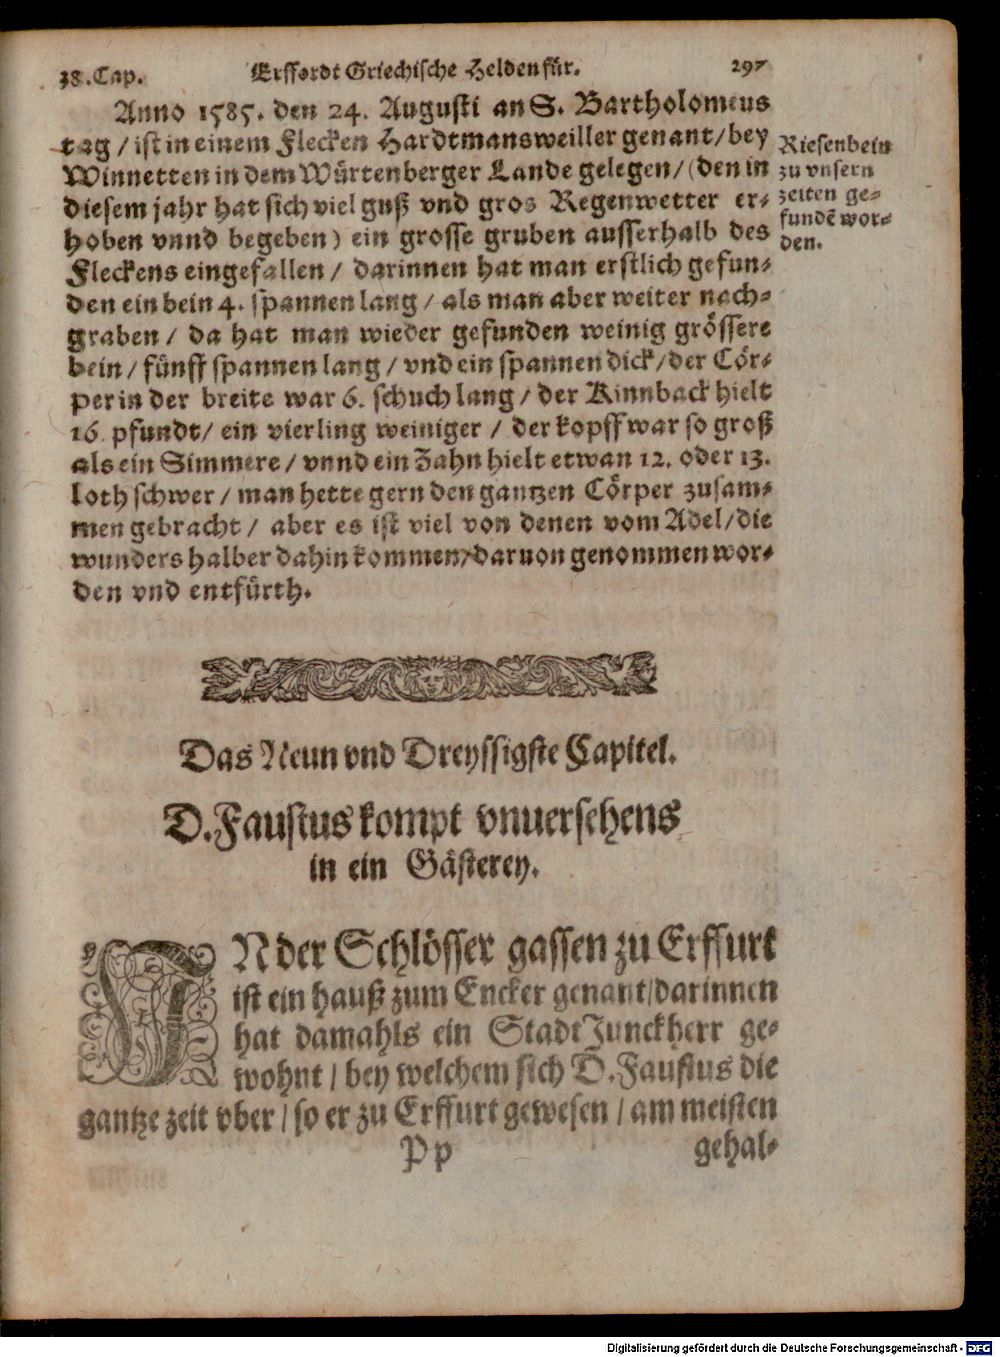 38. Cap. Erffordt Griechische Helden für. 297
Anno 1585. den 24. Augusti an S. Bartholomeus
tag / ist in einem Flecken Hardtmansweiller genant / bey
Winnetten in dem Würtenberger Lande gelegen / (den in
diesem jahr hat sich viel guß vnd gros Regenwetter er-
hoben vnnd begeben) ein grosse gruben ausserhalb des
Fleckens eingefallen / darinnen hat man erstlich gefun-
den ein bein 4. spannen lang / als man aber weiter nach-
graben / da hat man wieder gefunden weinig grössere
bein / fünff spannen lang / vnd ein spannen dick / der Cör-
per in der breite war 6. schuch lang / der Kinnback hielt
16. pfundt / ein vierling weiniger / der kopff war so groß
als ein Simmere / vnnd ein Zahn hielt etwan 12. oder 13.
loth schwer / man hette gern den gantzen Cörper zusam-
men gebracht / aber es ist viel von denen vom Adel / die
wunders halber dahin kommen / daruon genommen wor-
den vnd entfürth.
Riesenbein
zu vnsern
zeiten ge-
fundē wor-
den.
Das Neun vnd Dreyssigste Capitel.
D. Faustus kompt vnuersehens
in ein Gästerey.
IN der Schlösser gassen zu Erffurt
ist ein hauß zum Encker genant / darinnen
hat damahls ein StadtJunckherr ge-
wohnt / bey welchem sich D. Faustus die
gantze zeit vber / so er zu Erffurt gewesen / am meisten
Pp gehal-
Digitalisierung gefördert durch die Deutsche Forschungsgemeinschaft - DFG